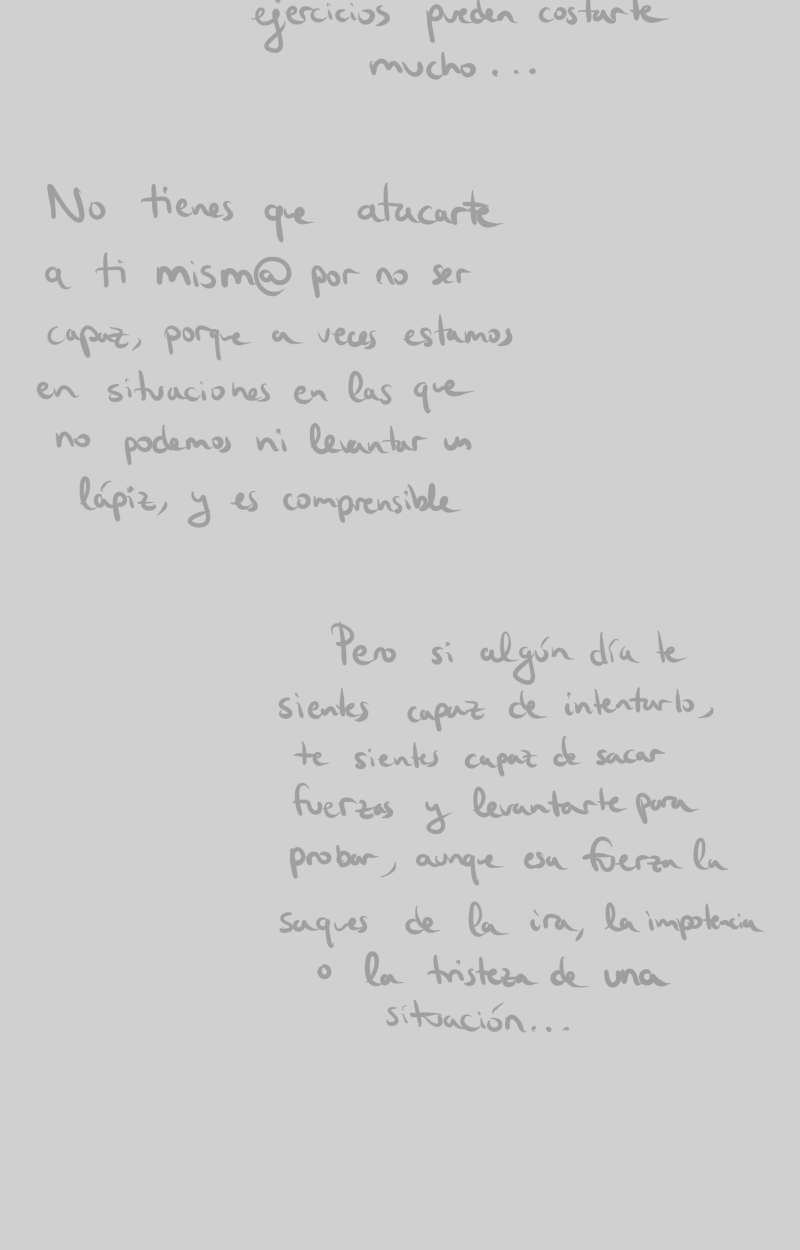 ejercicios pueden costarte
mucho...
No tienes que atacarte
a ti mism@ por no ser
capaz, porque a veces estamos
en situaciones en las que
no podemos ni levantar un
lápiz, y es comprensible
Pero si algún día te
sientes capaz de intentarlo,
te sientes capaz de sacar
fuerzas y levantarte para
probar, aunque esa fuerza la
saques de la ira, la impotencia
o la tristeza de una
situación...